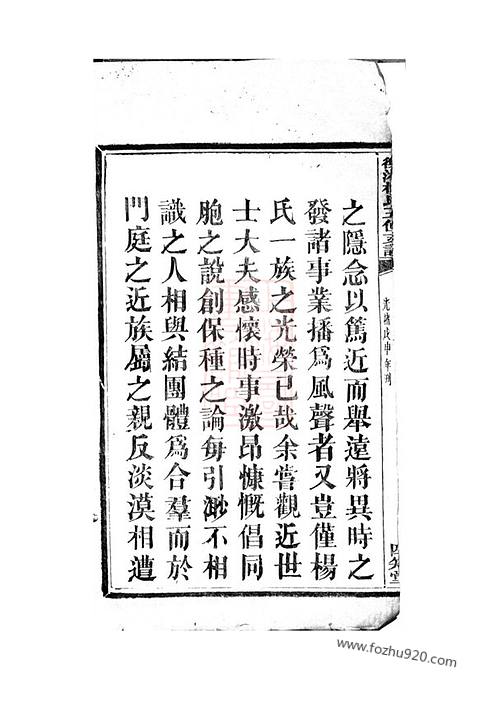 光緒戊申年刊
四知堂
之隱念以篤近而舉遠將異時之
發諸事業播爲風聲者又豈僅楊
氏一族之光榮已哉余嘗觀近世
士大夫感懷時事激昂慷慨倡同
胞之說創保種之論每引渺不相
識之人相與結團體爲合羣而於
門庭之近族屬之親反淡漠相遭
www.fozhu920.com